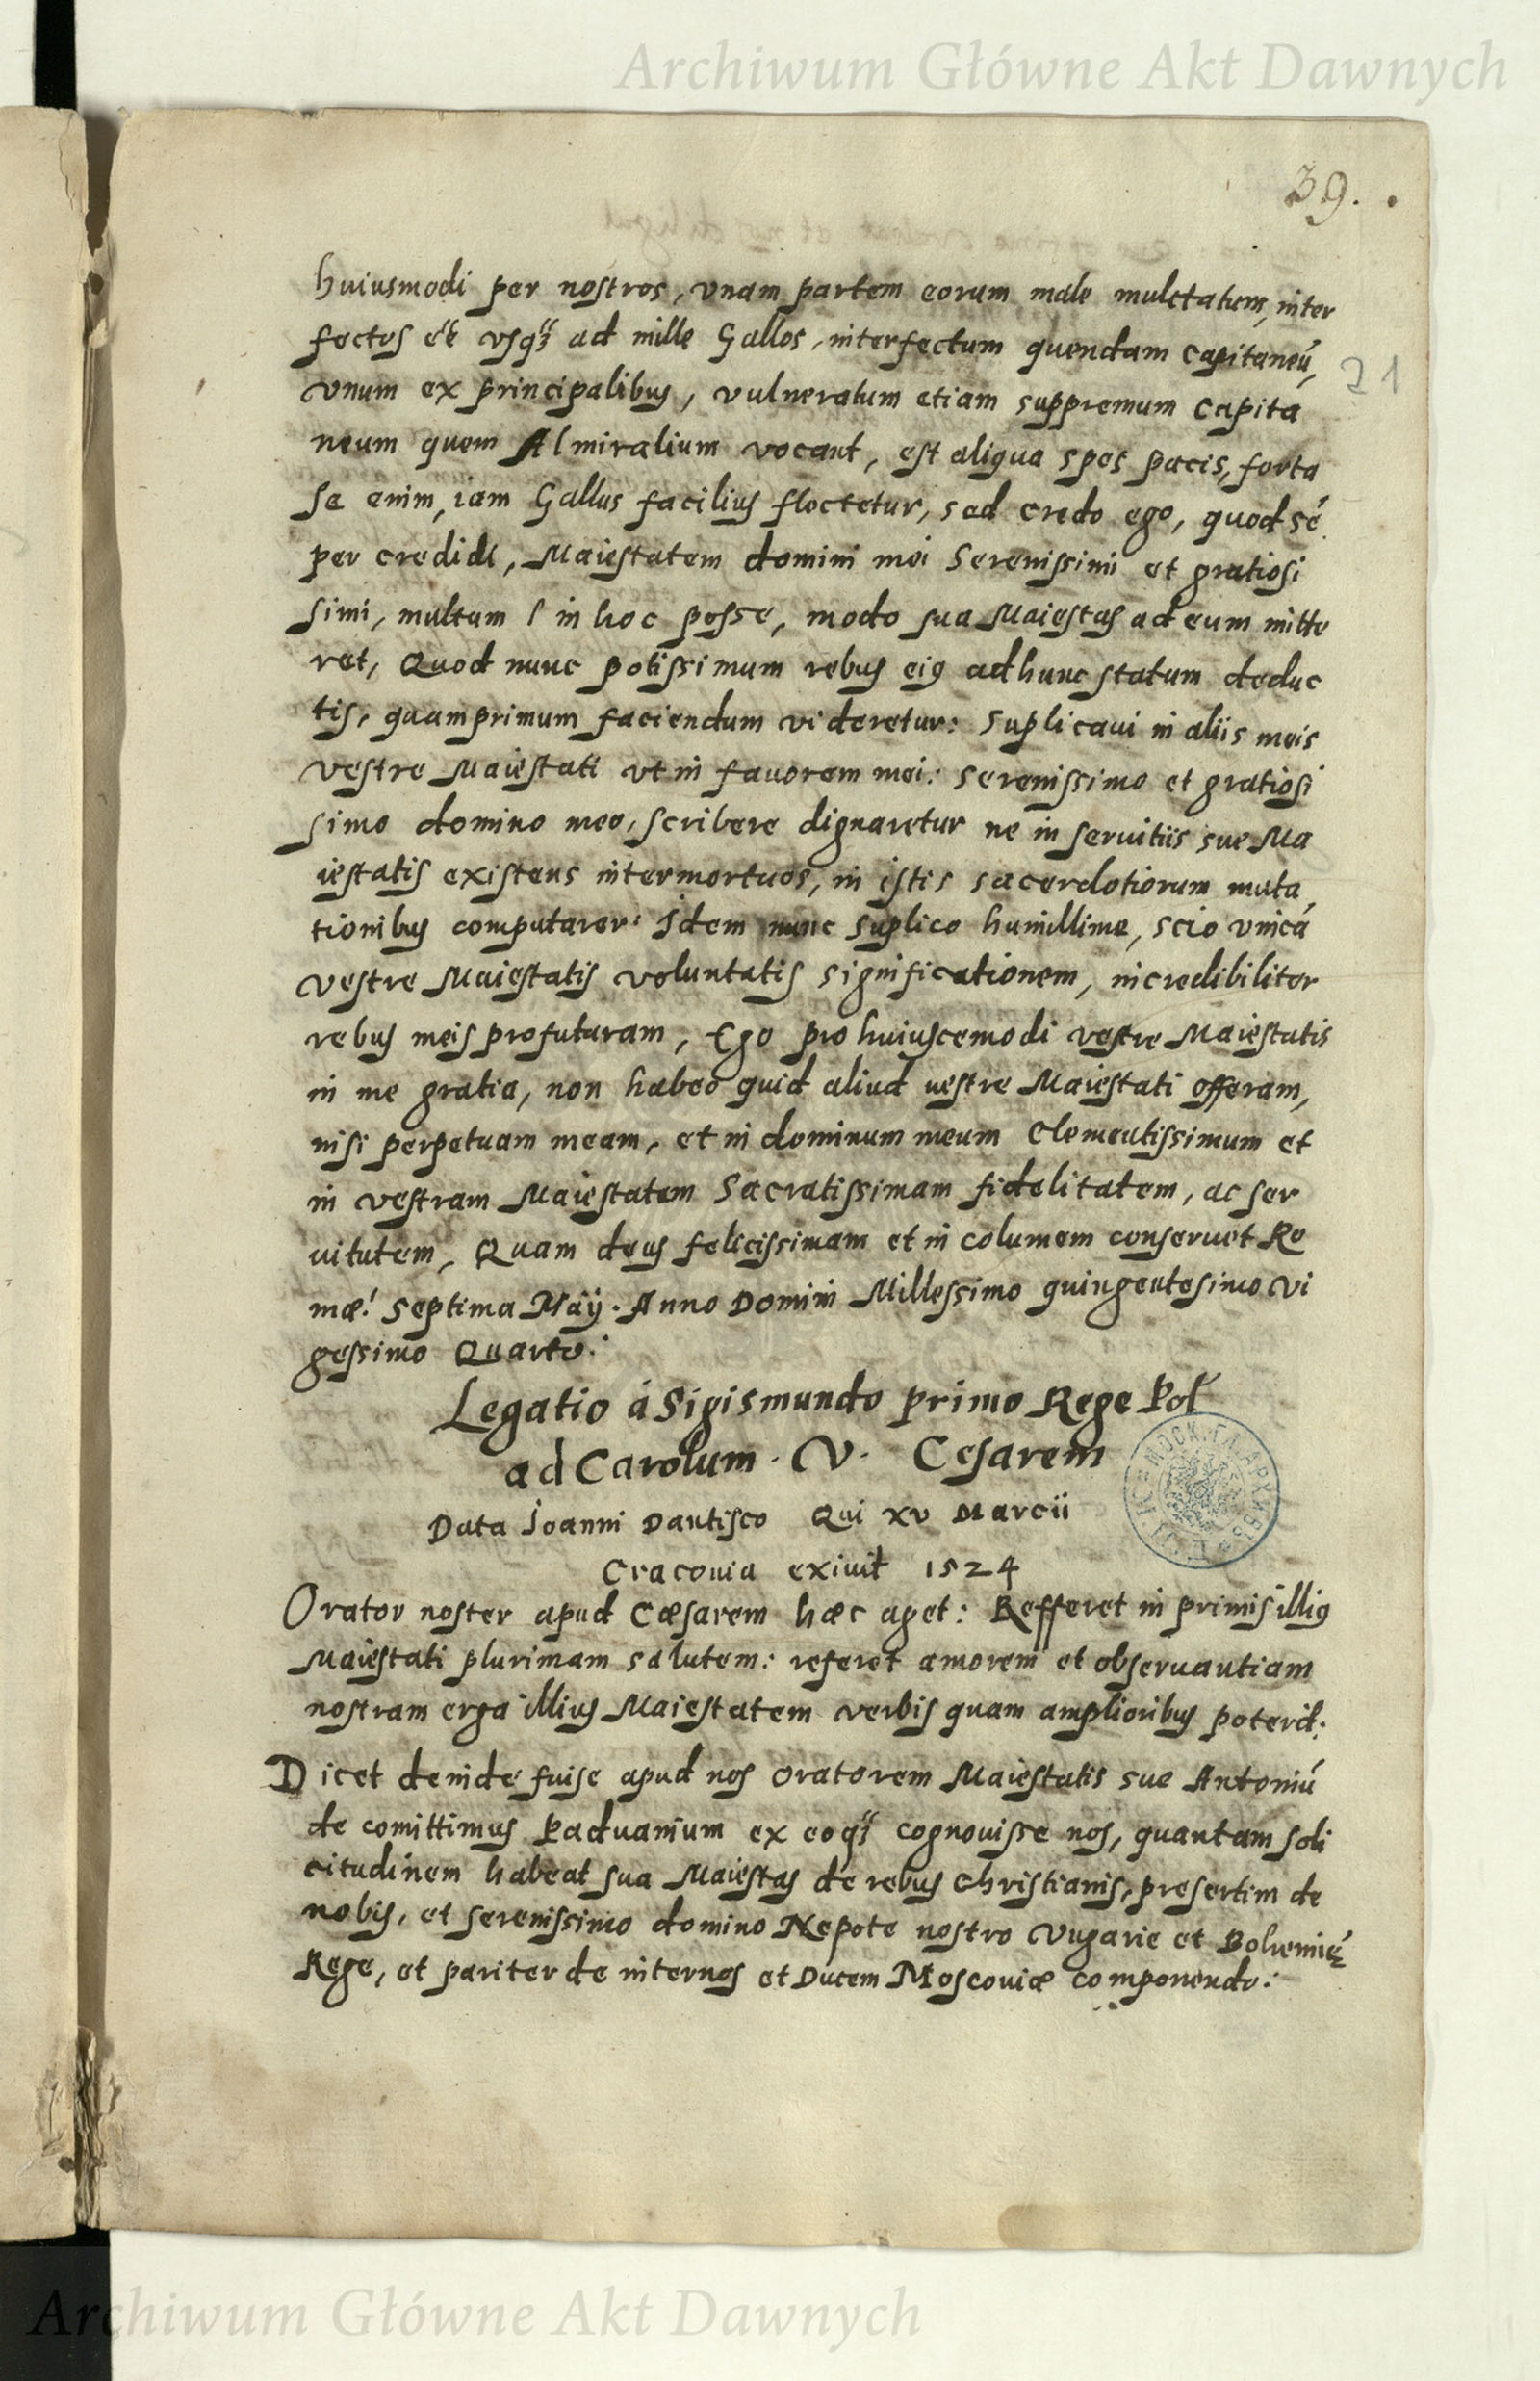 Archiwum Główne Akt Dawnych
39.
huiusmodi per nostros, vnam partem eorum male mulctatum, inter
fectos eße vsqꝫ ad mille Gallos, interfectum quendam Capitaneū,
21
vnum ex principalibus, vulneratum etiam suppremum Capita
neum quem Almiralium vocant, est aliqua spes pacis, forta
se enim, iam Gallus facilius flectetur, sed credo ego, quod sē
per credidi, Maiestatem domini mei Serenissimi et gratiosi
simi, multum in hoc posse, modo sua Maiestas ad eum mitte
ret, Quod nunc potissimum rebus eiꝰ ad hunc statum deduc
tis, quamprimum faciendum videretur: Suplicaui in aliis meis
vestre Maiestati vt in fauorem mei: Serenissimo et gratiosi
simo domino meo, scribere dignaretur ne in seruitiis sue Ma
iestatis existens inter mortuos, in istis sacerdotiorum muta,
tionibus computarer: Idem nunc suplico humillime, scio vnicā
vestre Maiestatis voluntatis significationem, incredibiliter
rebus meis profuturam, Ego pro huiuscemodi vestre Maiestatis
in me gratia, non habeo quid aliud uestre Maiestati offeram,
nisi perpetuam meam, et in dominum meum Clementissimum et
in vestram Maiestatem Sacratissimam fidelitatem, ac ser
uitutem, Quam deus felicissimam et in columem conseruet Ro
mæ: Septima Maÿ. Anno Domini Millessimo quingentesimo vi
gessimo Quarto:
Legatio á Sigismundo primo Rege Pol
ad Carolum. V. Cesarem
Data Ioanni Dantisco Qui xv Marcii
Cracouia exiuit 1524
Orator noster apud Cæsarem hæc aget: Refferet in primis illiꝰ
Maiestati plurimam salutem: referet amorem et obseruantiam
nostram erga illius Maiestatem verbis quam amplioribus poterit.
Dicet deinde fuise apud nos Oratorem Maiestatis sue Antoniū
de comittimus Paduanium ex eoqꝫ cognouisse nos, quantam soli
citudinem habeat sua Maiestas de rebus Christianis, presertim de
nobis, et serenissimo domino Nepote nostro Vngarie et Bohemię
Rege, et pariter de inter nos et Ducem Moscouiæ componendo:
Archiwum Główne Akt Dawnych